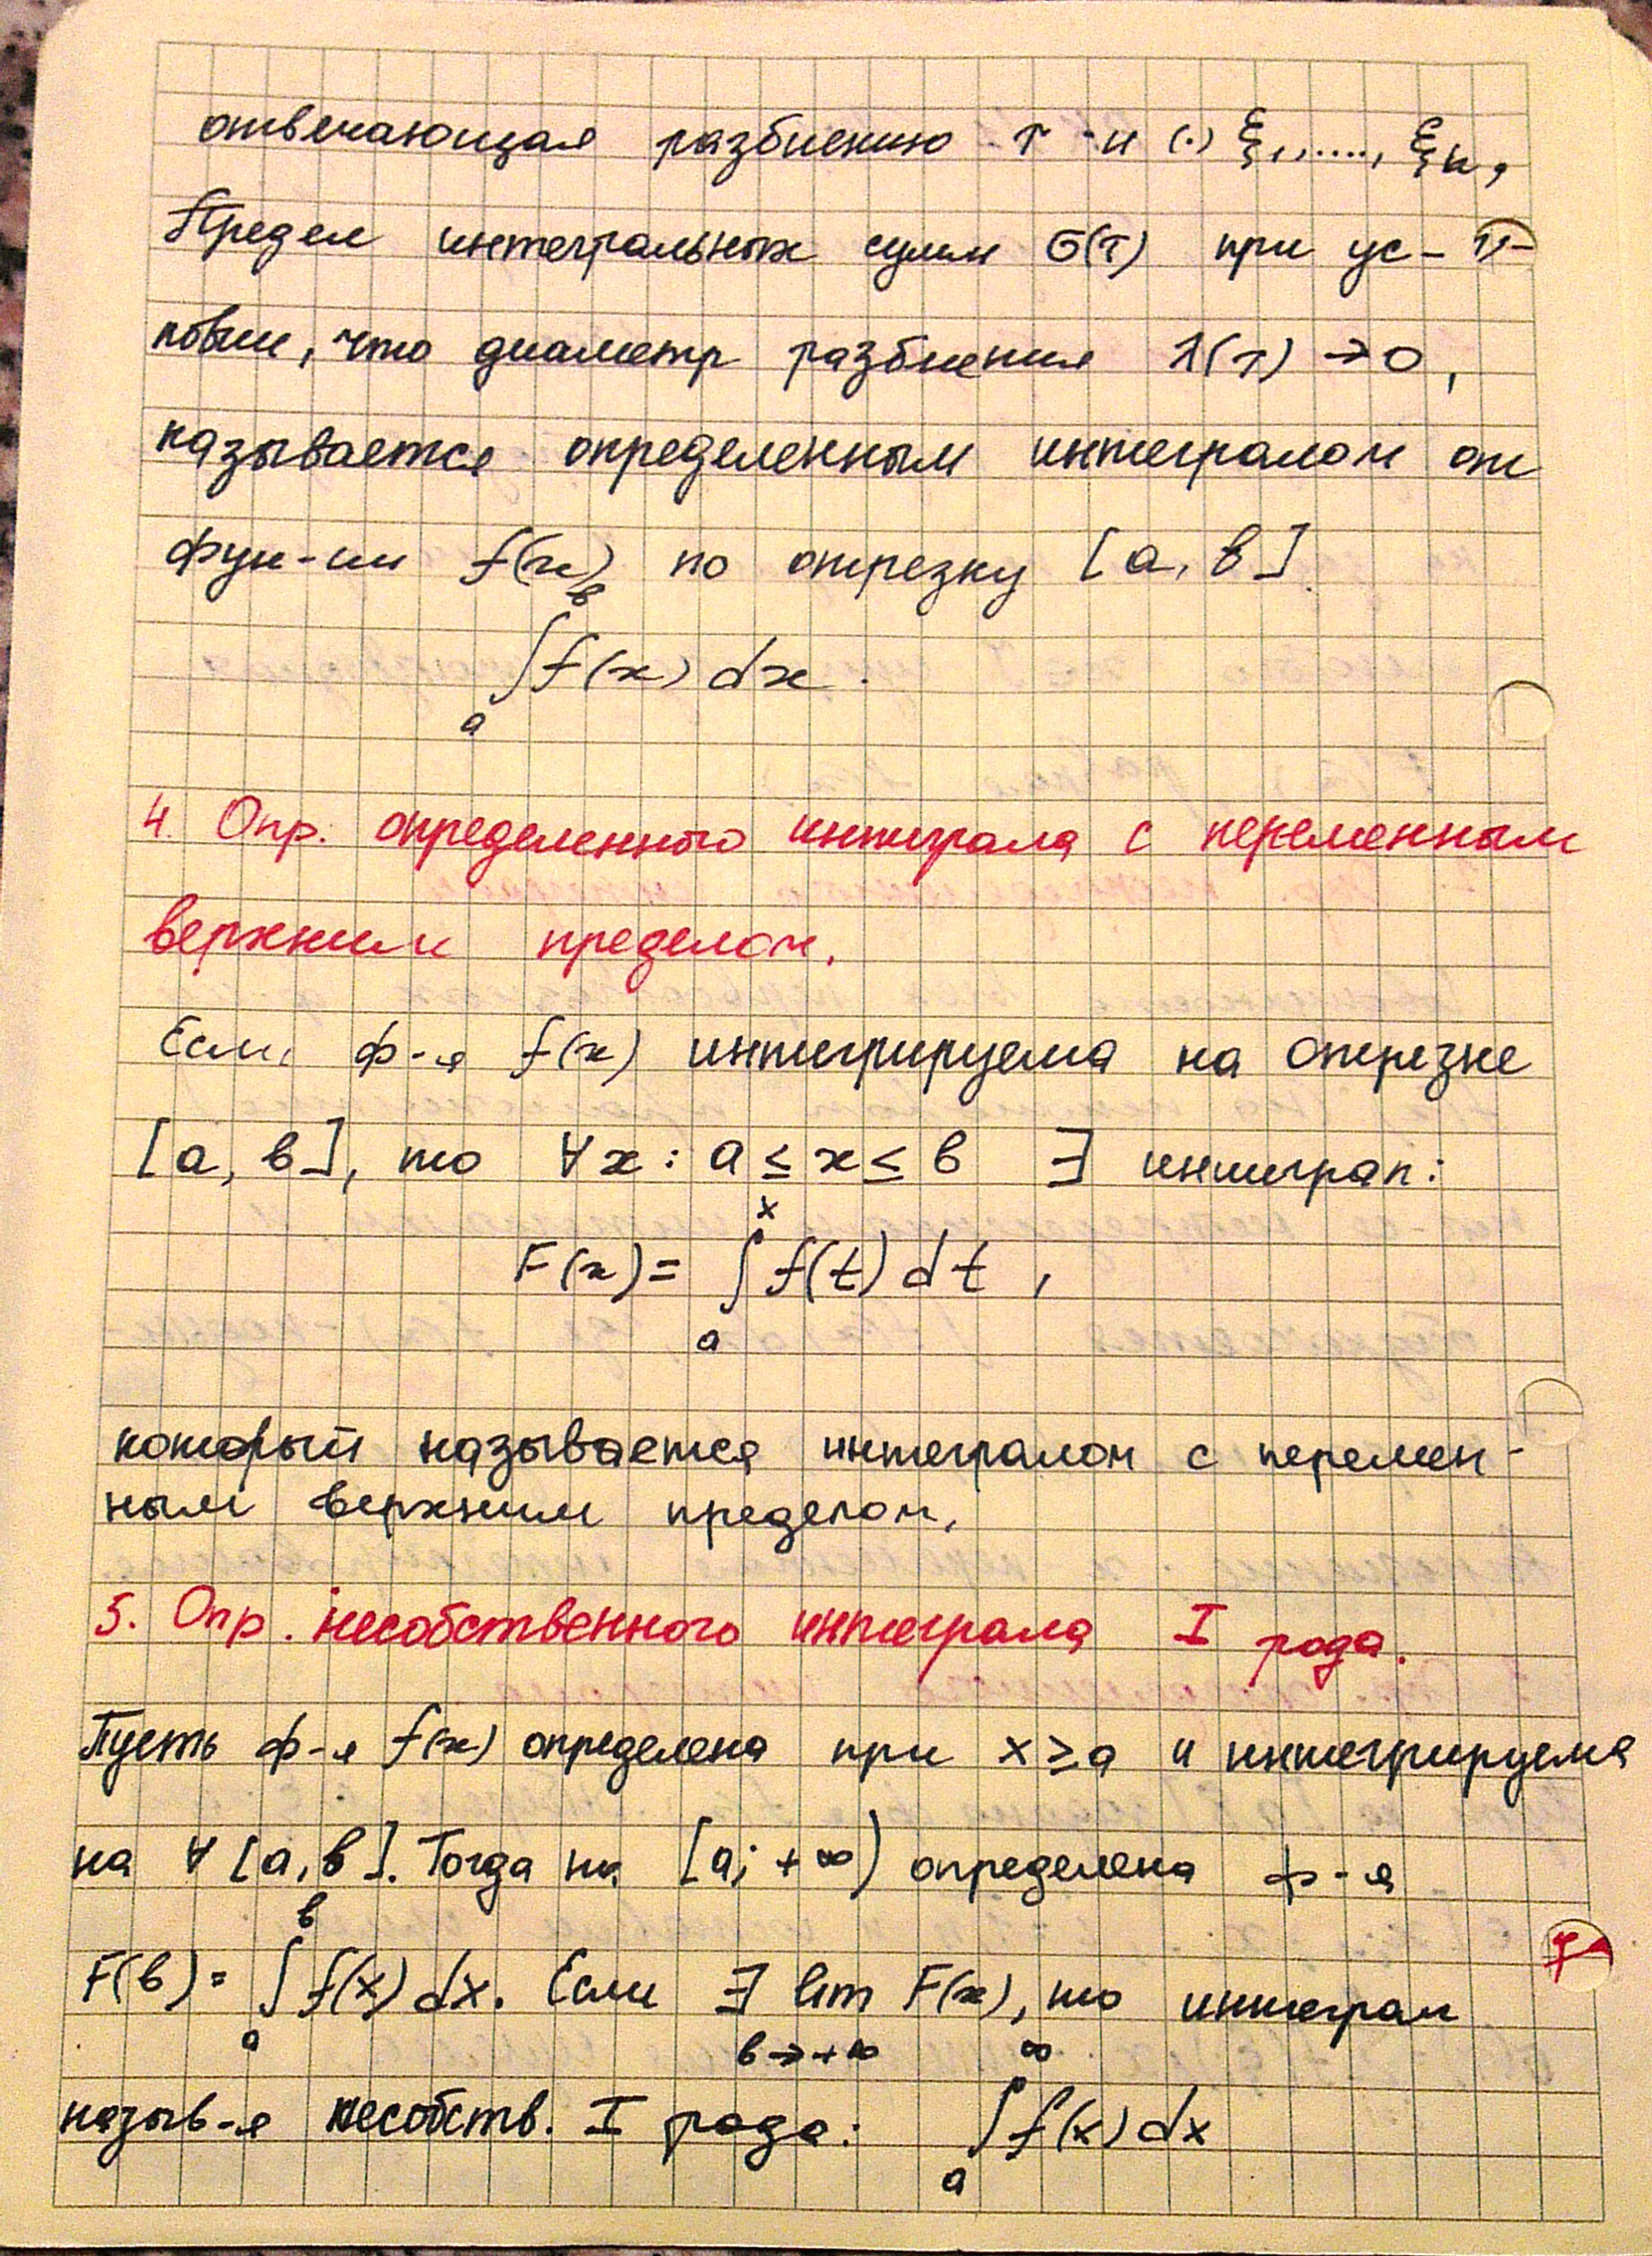 отвечающая разбиению τ и (·) ξ₁,....., ξₙ,
Предел интегральных сумм σ(τ) при ус-
ловии, что диаметр разбиения λ(τ) → 0,
называется определенным интегралом от
фун-ии f(x) по отрезку [a, b]
∫ₐᵇ f(x) dx.
4. Опр. определенного интеграла с переменным
верхним пределом.
Если ф-я f(x) интегрируема на отрезке
[a, b], то ∀x: a ≤ x ≤ b ∃ интеграл:
F(x) = ∫ₐˣ f(t) dt,
который называется интегралом с перемен-
ным верхним пределом.
5. Опр. несобственного интеграла I рода.
Пусть ф-я f(x) определена при x ≥ a и интегрируема
на ∀ [a, b]. Тогда на [a; +∞) определена ф-я
F(b) = ∫ₐᵇ f(x) dx. Если ∃ lim F(x), то интеграл
b → +∞
назыв-я несобств. I рода: ∫ₐ^∞ f(x) dx